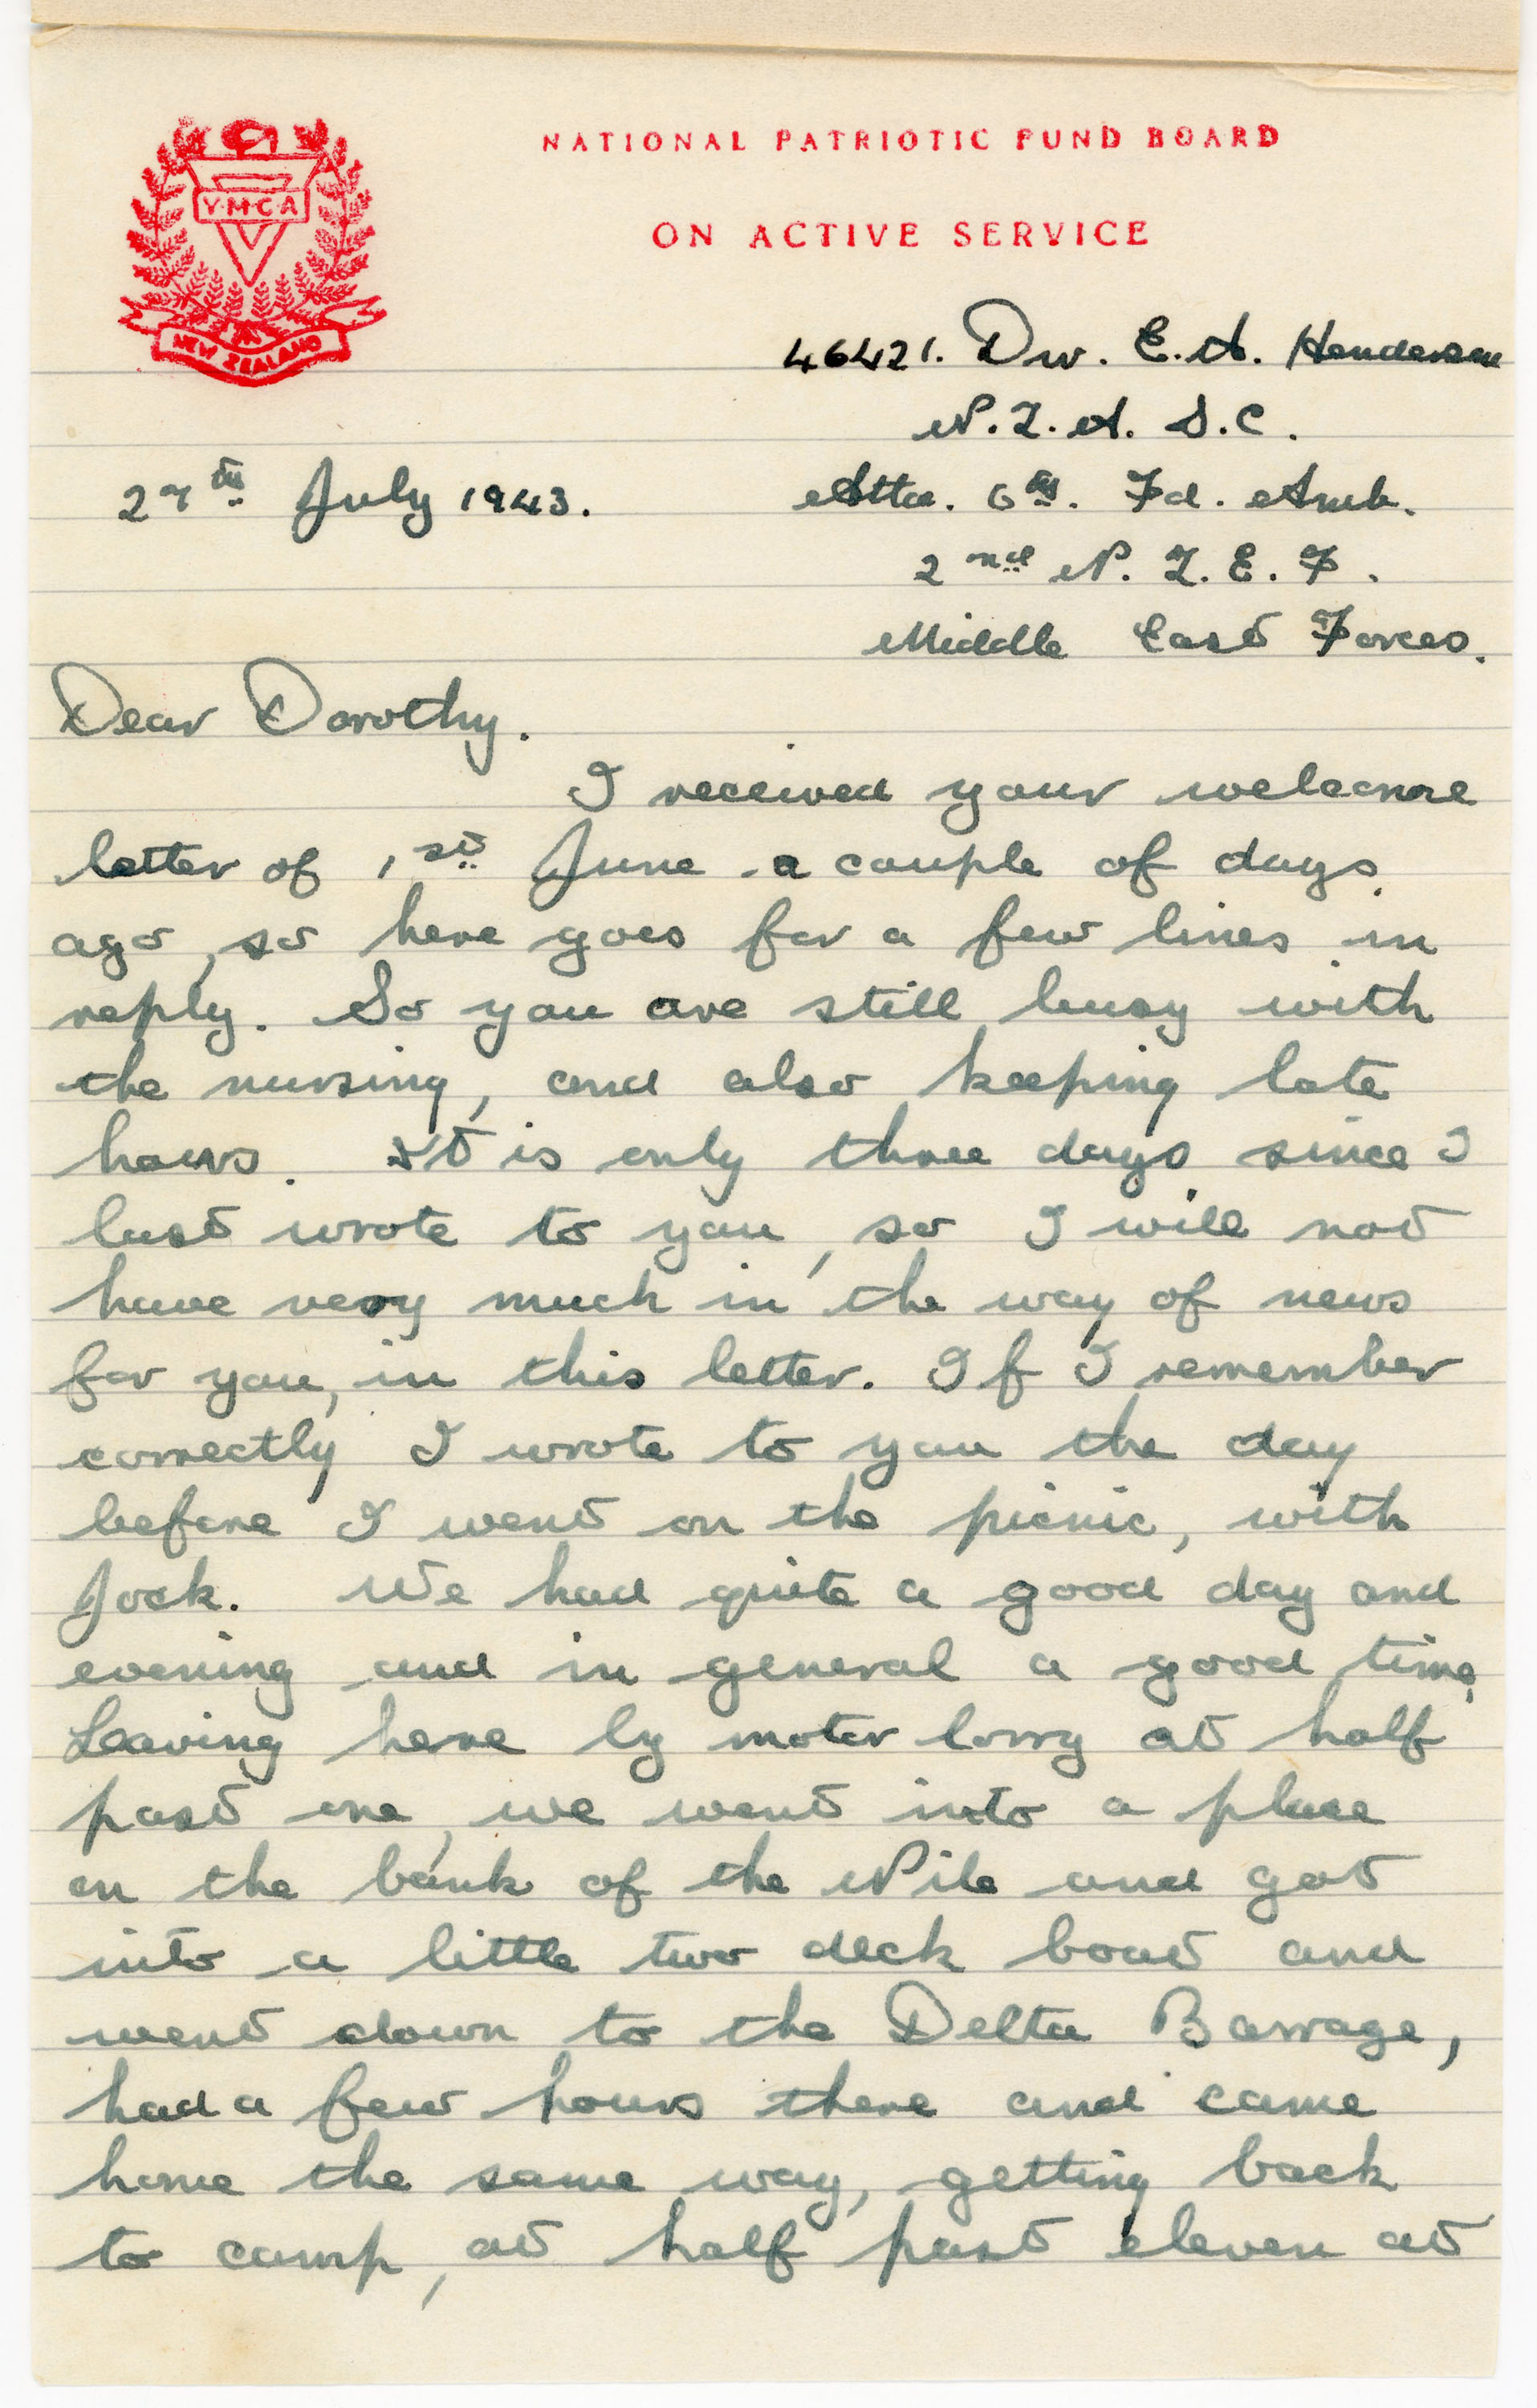 NATIONAL PATRIOTIC FUND BOARD
ON ACTIVE SERVICE
Y.M.C.A
NEW ZEALAND
46421. Dvr. E.A. Henderson
N.Z.A.S.C.
27th July 1943.
Atta. 6th. Fd. Amb.
2nd N.Z.E.F.
Middle East Forces.
Dear Dorothy.
I received your welcome
letter of 1st June a couple of days
ago, so here goes for a few lines in
reply. So you are still busy with
the nursing, and also keeping late
hours. It is only three days since I
last wrote to you, so I will not
have very much in the way of news
for you, in this letter. If I remember
correctly I wrote to you the day
before I went on the picnic, with
Jock. We had quite a good day and
evening and in general a good time.
Leaving here by motor lorry at half
past one, we went into a place
on the bank of the Nile and got
into a little two deck boat and
went down to the Delta Barrage,
had a few hours there and came
home the same way, getting back
to camp, at half past eleven at